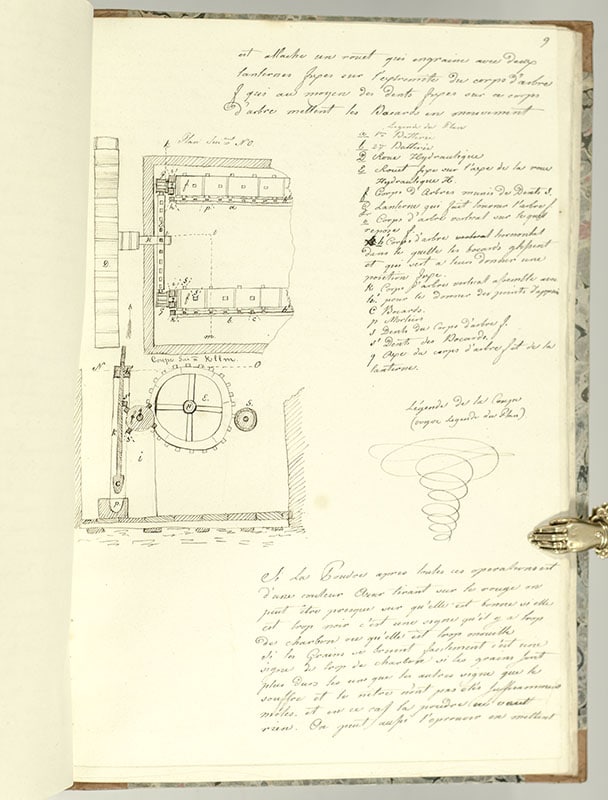 9
est attaché un rouet qui engraine avec deux
lanternes fixes sur l'extremité du corps d'arbre
f qui au moyen des dents fixes sur ce corps
d'arbre mettent les Bocards en mouvement
Plan N O
Légende du Plan
a 1re Batterie
b 2e Batterie
D Roue Hydraulique
E Rouet fixe sur l'axe de la roue
Hydraulique H.
f Corps d'Arbres muni de Dents S.
g Lanterne qui fait tourner l'arbre f
e Corps d'arbre vertical sur lequel
repose f
h Corps d'arbre horizontal
dans le quelle les bocards glissent
et qui sert a leur donner une
position fixe.
K Corps d'arbre vertical assemblé avec
pour le donner des points d'appui
C Bocards.
p Mortiers
s Dents du Corps d'arbre f.
s' Dents des Bocards.
q Axe du corps d'arbre f et de la
lanterne.
Coupe K l l m
N O
D
H
E.
i
C
P
m
Légende de la Coupe
(voyez Légende du Plan)
Si La Poudre apres toutes ces operations est
d'une couleur Azur tirant sur le rouge on
peut être presque sur qu'elle est bonne si elle
est trop noir c'est une signe qu'il y a trop
de charbon ou qu'elle est trop mouillé
Si les Grains se brisent facilement c'est une
signe de trop de charbon si les grains sont
plus durs les uns que les autres signe que le
souffre et le nitre n'ont pas été suffisamment
mêlés. et en ce cas la poudre ne vaut
rien. On peut aussi l'eprouver en mettant